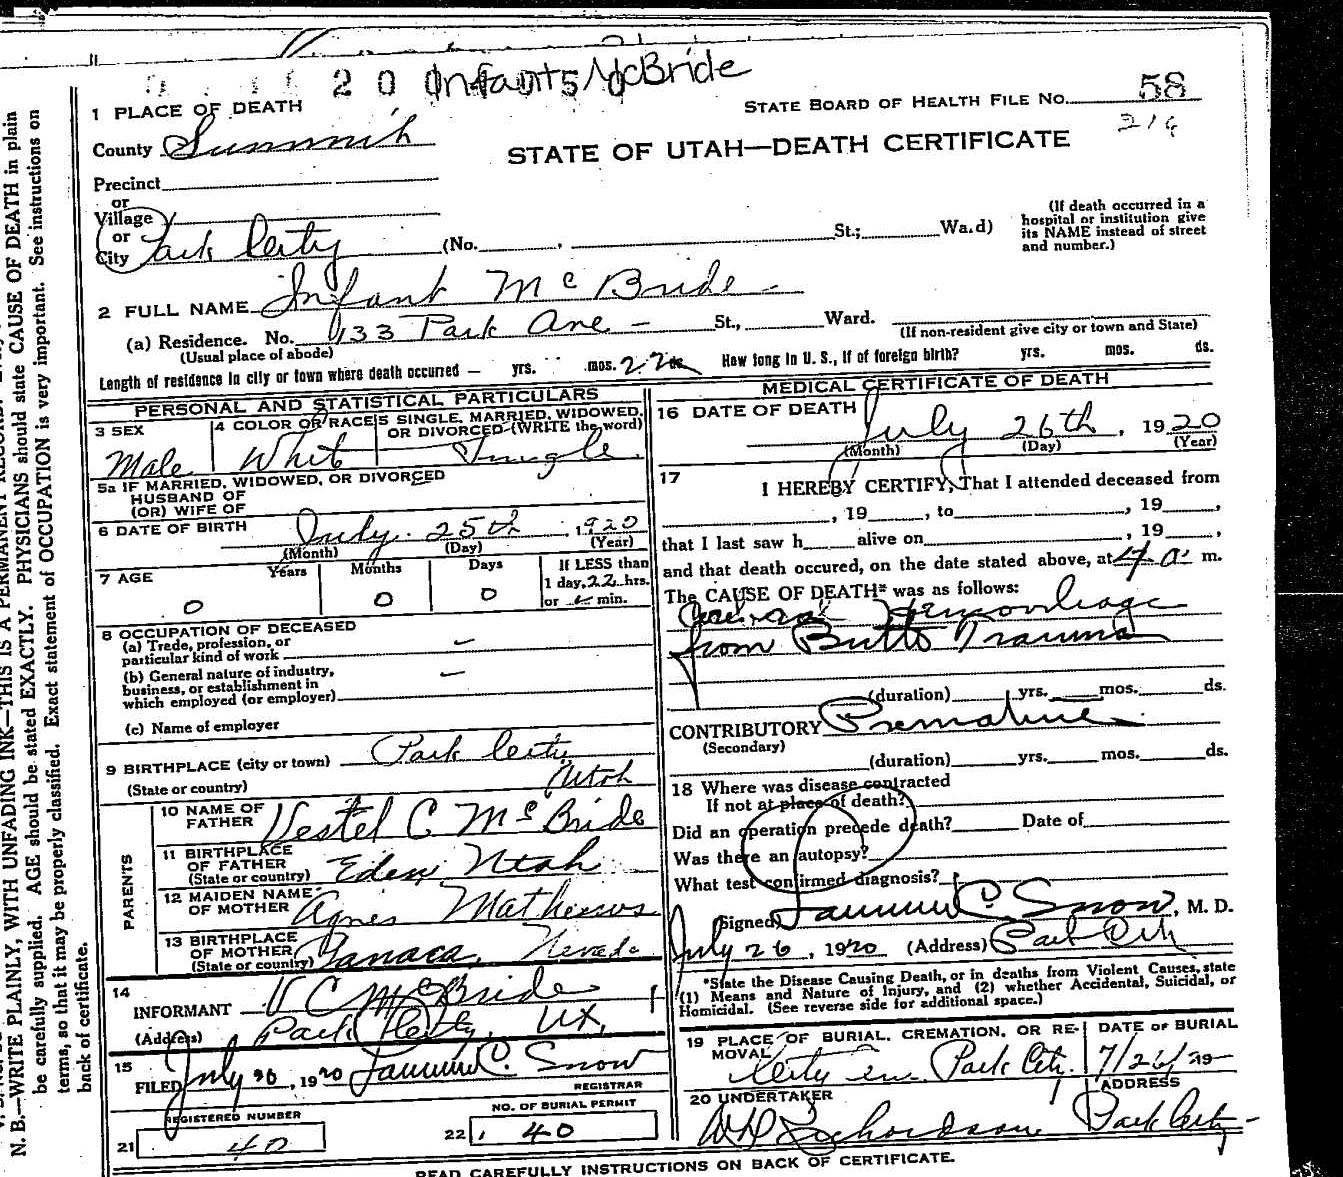 Infant McBride
1 PLACE OF DEATH
STATE BOARD OF HEALTH FILE No. 58
216
County Summit
STATE OF UTAH—DEATH CERTIFICATE
Precinct
or
Village
or
City Park City (No. , St.; Ward)
(If death occurred in a
hospital or institution give
its NAME instead of street
and number.)
2 FULL NAME Infant McBride
(a) Residence. No. 133 Park Ave - St., Ward.
(Usual place of abode)
(If non-resident give city or town and State)
Length of residence in city or town where death occurred — yrs. mos. 22 How long in U. S., if of foreign birth? yrs. mos. ds.
PERSONAL AND STATISTICAL PARTICULARS
3 SEX
Male
4 COLOR OR RACE
Whit
5 SINGLE, MARRIED, WIDOWED,
OR DIVORCED (WRITE the word)
Single
5a IF MARRIED, WIDOWED, OR DIVORCED
HUSBAND OF
(OR) WIFE OF
6 DATE OF BIRTH July 25th, 1920
(Month) (Day) (Year)
7 AGE Years Months Days If LESS than
1 day, 22 hrs.
0 0 0 or min.
8 OCCUPATION OF DECEASED
(a) Trade, profession, or
particular kind of work —
(b) General nature of industry,
business, or establishment in
which employed (or employer) —
(c) Name of employer
9 BIRTHPLACE (city or town) Park City
(State or country) Utah
PARENTS
10 NAME OF
FATHER Vestel C McBride
11 BIRTHPLACE
OF FATHER
(State or country) Eden Utah
12 MAIDEN NAME
OF MOTHER Agnes Mathews
13 BIRTHPLACE
OF MOTHER
(State or country) Panaca, Nevada
14
INFORMANT V C McBride
(Address) Park City, Ut,
15
FILED July 26, 1920 C. Snow
REGISTRAR
REGISTERED NUMBER
21 40
NO. OF BURIAL PERMIT
22 40
MEDICAL CERTIFICATE OF DEATH
16 DATE OF DEATH July 26th, 1920
(Month) (Day) (Year)
17
I HEREBY CERTIFY, That I attended deceased from
, 19 , to , 19 ,
that I last saw h alive on , 19 ,
and that death occured, on the date stated above, at 4 a. m.
The CAUSE OF DEATH* was as follows:
Hemorrhage
from Birth Trauma
(duration) yrs. mos. ds.
CONTRIBUTORY Premature
(Secondary)
(duration) yrs. mos. ds.
18 Where was disease contracted
If not at place of death?
Did an operation precede death? Date of
Was there an autopsy?
What test confirmed diagnosis?
(Signed) C. Snow, M. D.
July 26, 1920 (Address) Park City
*State the Disease Causing Death, or in deaths from Violent Causes, state
(1) Means and Nature of Injury, and (2) whether Accidental, Suicidal, or
Homicidal. (See reverse side for additional space.)
19 PLACE OF BURIAL, CREMATION, OR RE-
MOVAL
City Park City.
DATE OF BURIAL
7/26/
20 UNDERTAKER
Richardson
ADDRESS
Park City
READ CAREFULLY INSTRUCTIONS ON BACK OF CERTIFICATE.
N. B.—WRITE PLAINLY, WITH UNFADING INK—THIS IS A PERMANENT RECORD.
be carefully supplied. AGE should be stated EXACTLY. PHYSICIANS should state CAUSE OF DEATH in plain
terms, so that it may be properly classified. Exact statement of OCCUPATION is very important. See instructions on
back of certificate.